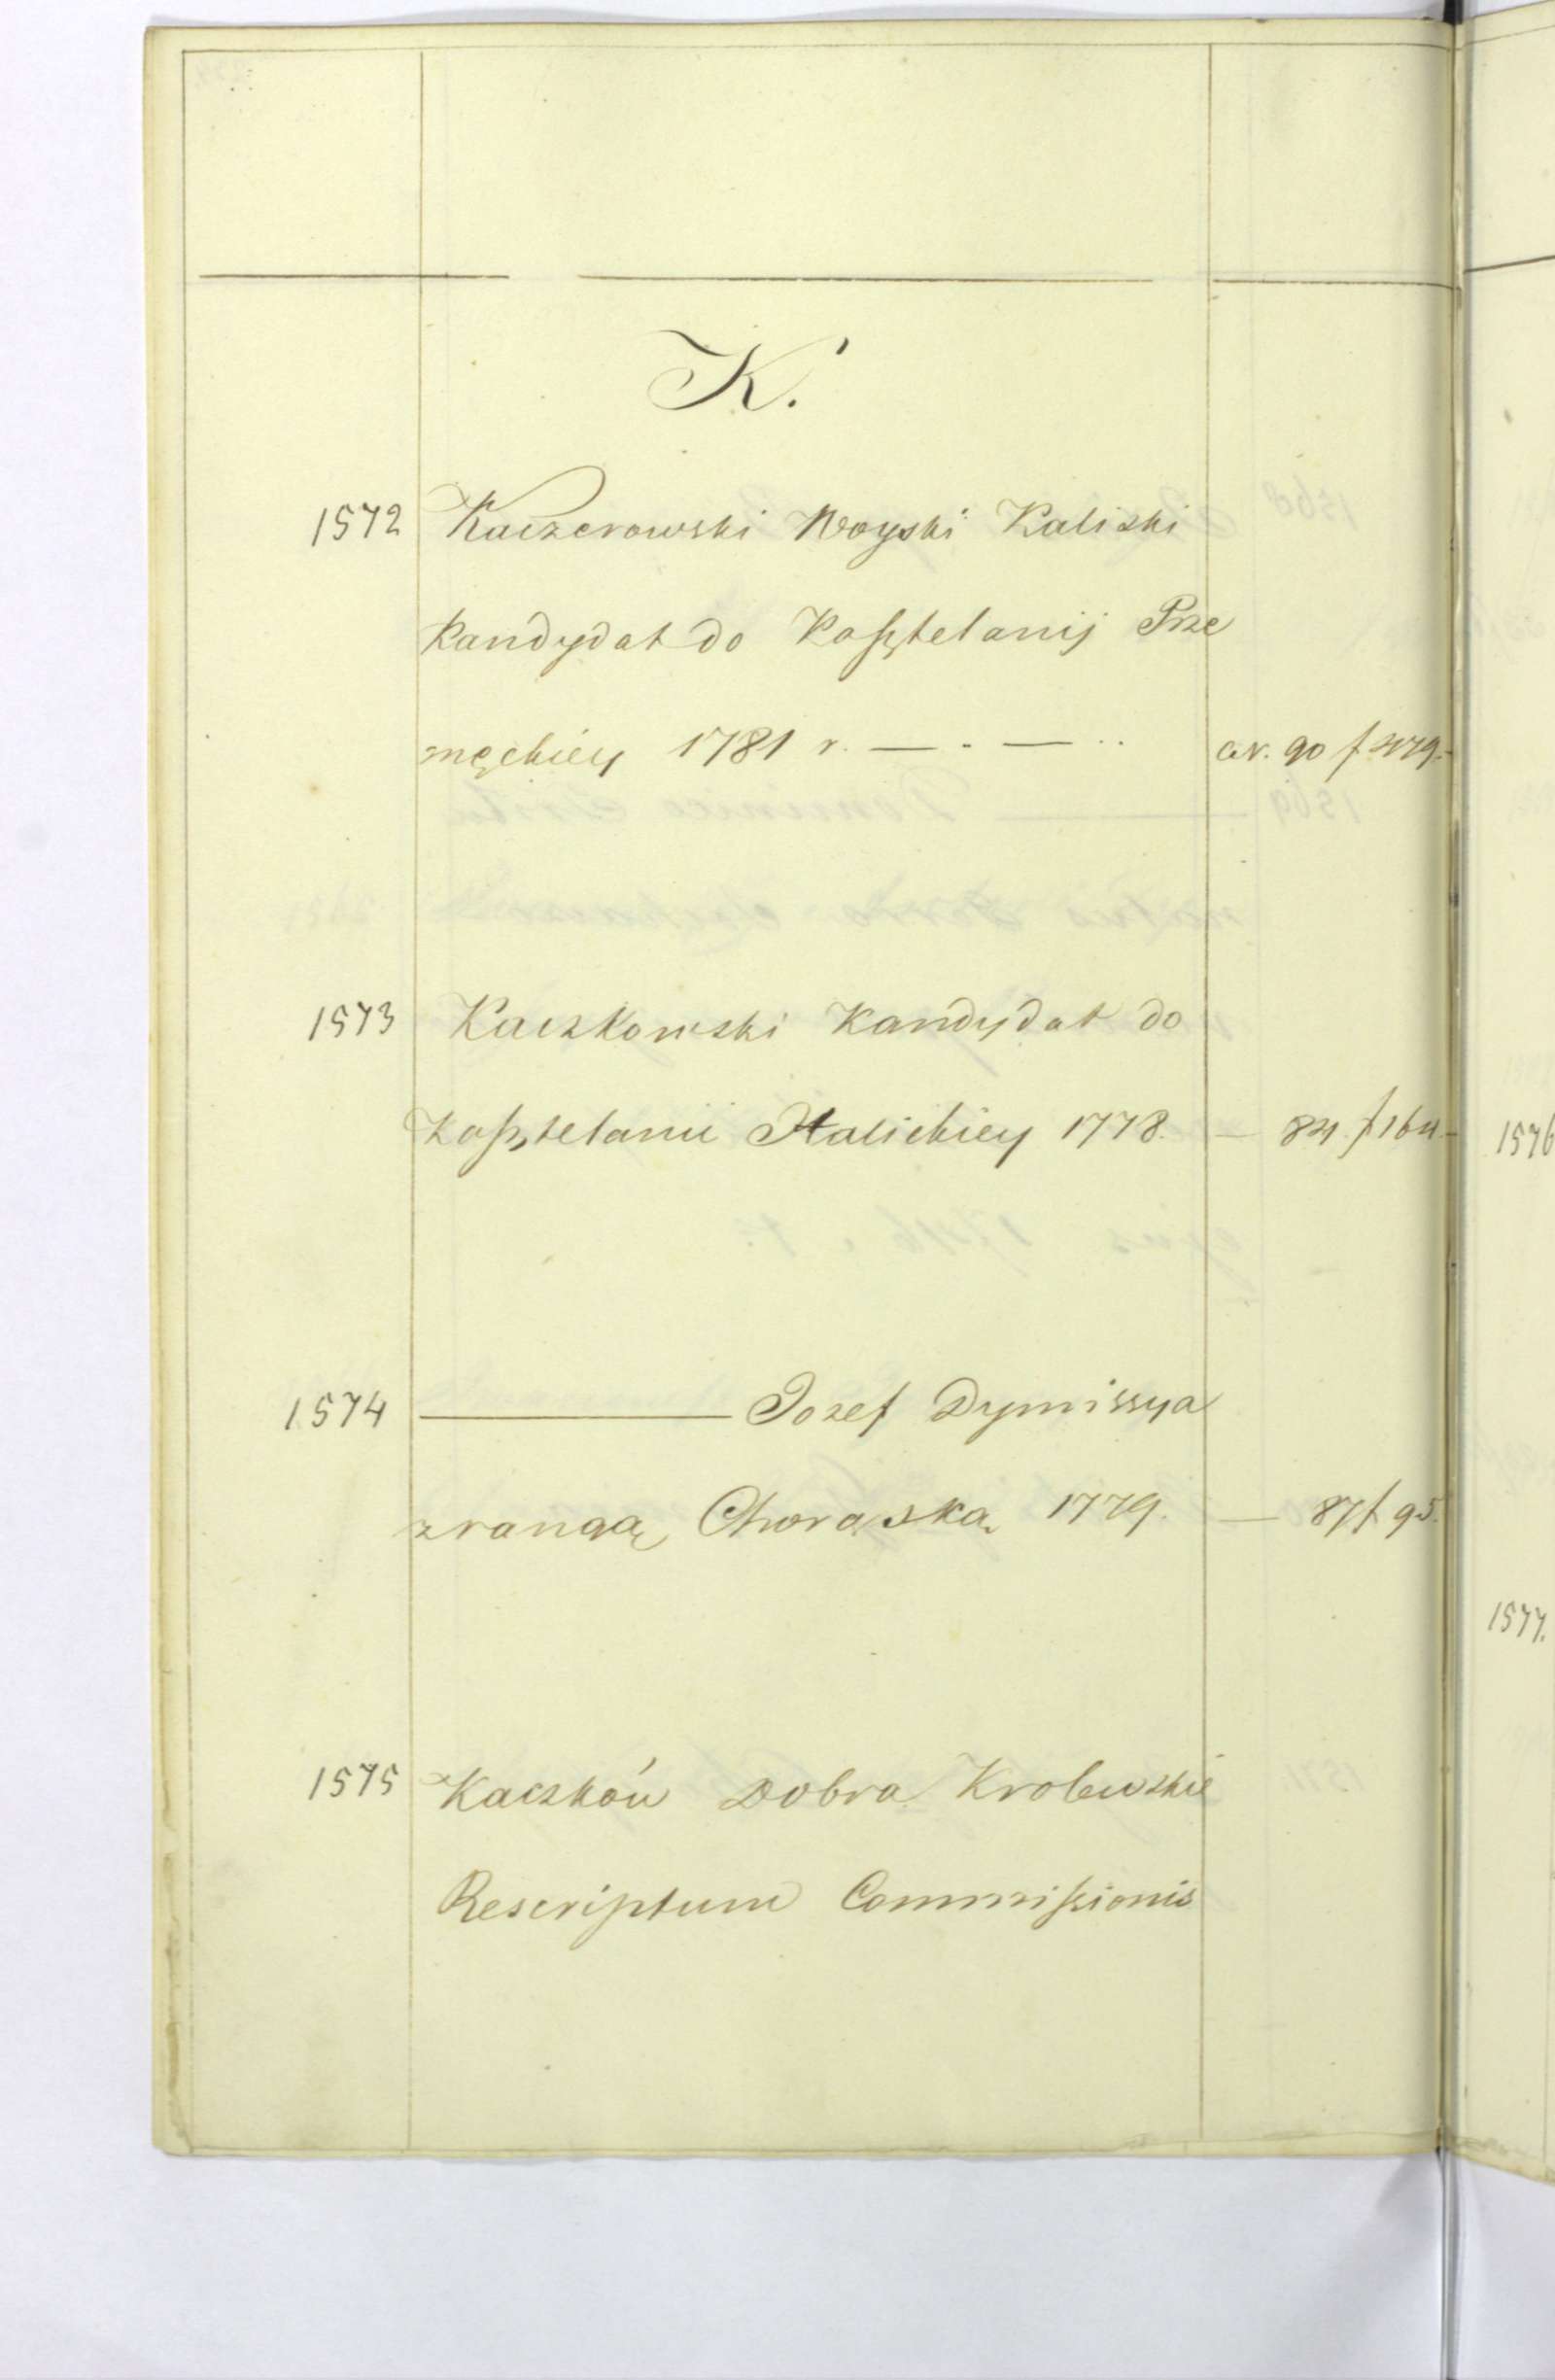 K.
1572 Kaczerowski Woyski Kaliski
Kandydat do Kasztelanij Prze
męckiey 1781 r. — . — .. av. 90 f. 479.
1573 Kaczkowski Kandydat do
Kasztelanii Halickiey 1778. — 84. f. 164
1574 ——— Jozef Dymissya
z rangą Chorąską 1779. — 87 f. 95.
1575 Kaczków Dobra Krolewskie
Rescriptum Commissionis
1576
1577.